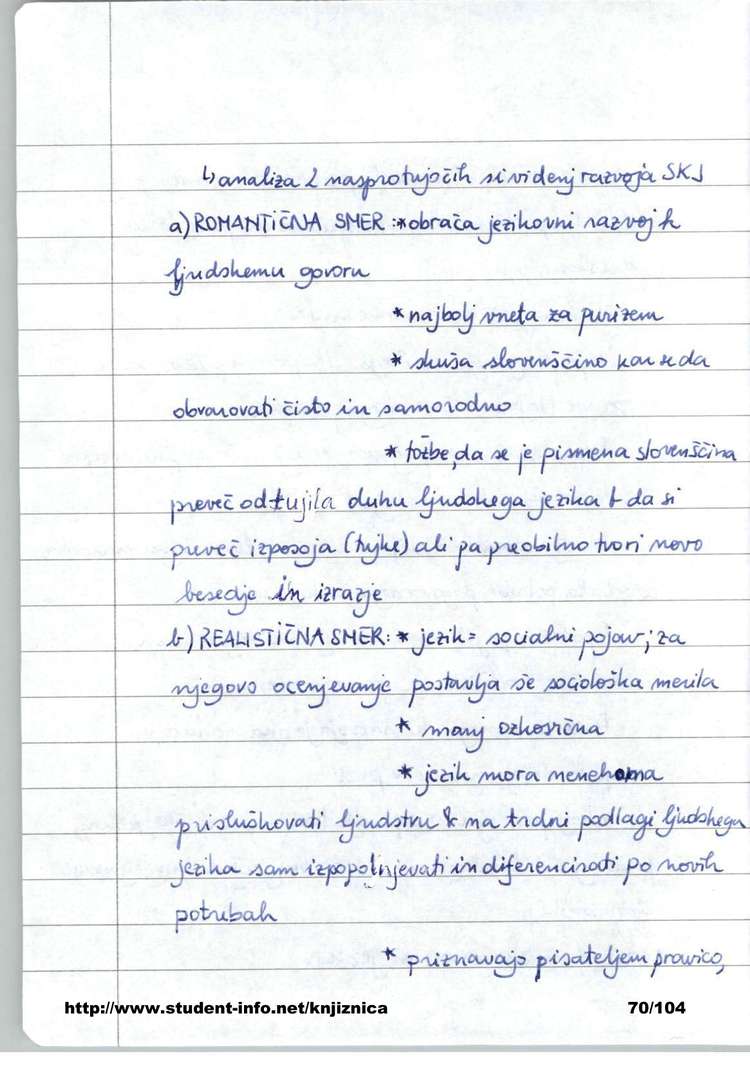 ↳ analiza 2 nasprotujočih si videnj razvoja SKJ
a) ROMANTIČNA SMER: * obrača jezikovni razvoj k
ljudskemu govoru
* najbolj vneta za purizem
* skuša slovenščino kar se da
obvarovati čisto in samorodno
* tožbe, da se je pismena slovenščina
preveč odtujila duhu ljudskega jezika & da si
preveč izposoja (tujke) ali pa preobilno tvori novo
besedje in izrazje
b) REALISTIČNA SMER: * jezik = socialni pojav; za
njegovo ocenjevanje postavlja še sociološka merila
* manj ozkosrčna
* jezik mora menehoma
prisluškovati ljudstvu & na trdni podlagi ljudskega
jezika sam izpopolnjevati in diferencirati po novih
potrebah
* priznavajo pisateljem pravico,
http://www.student-info.net/knjiznica 70/104